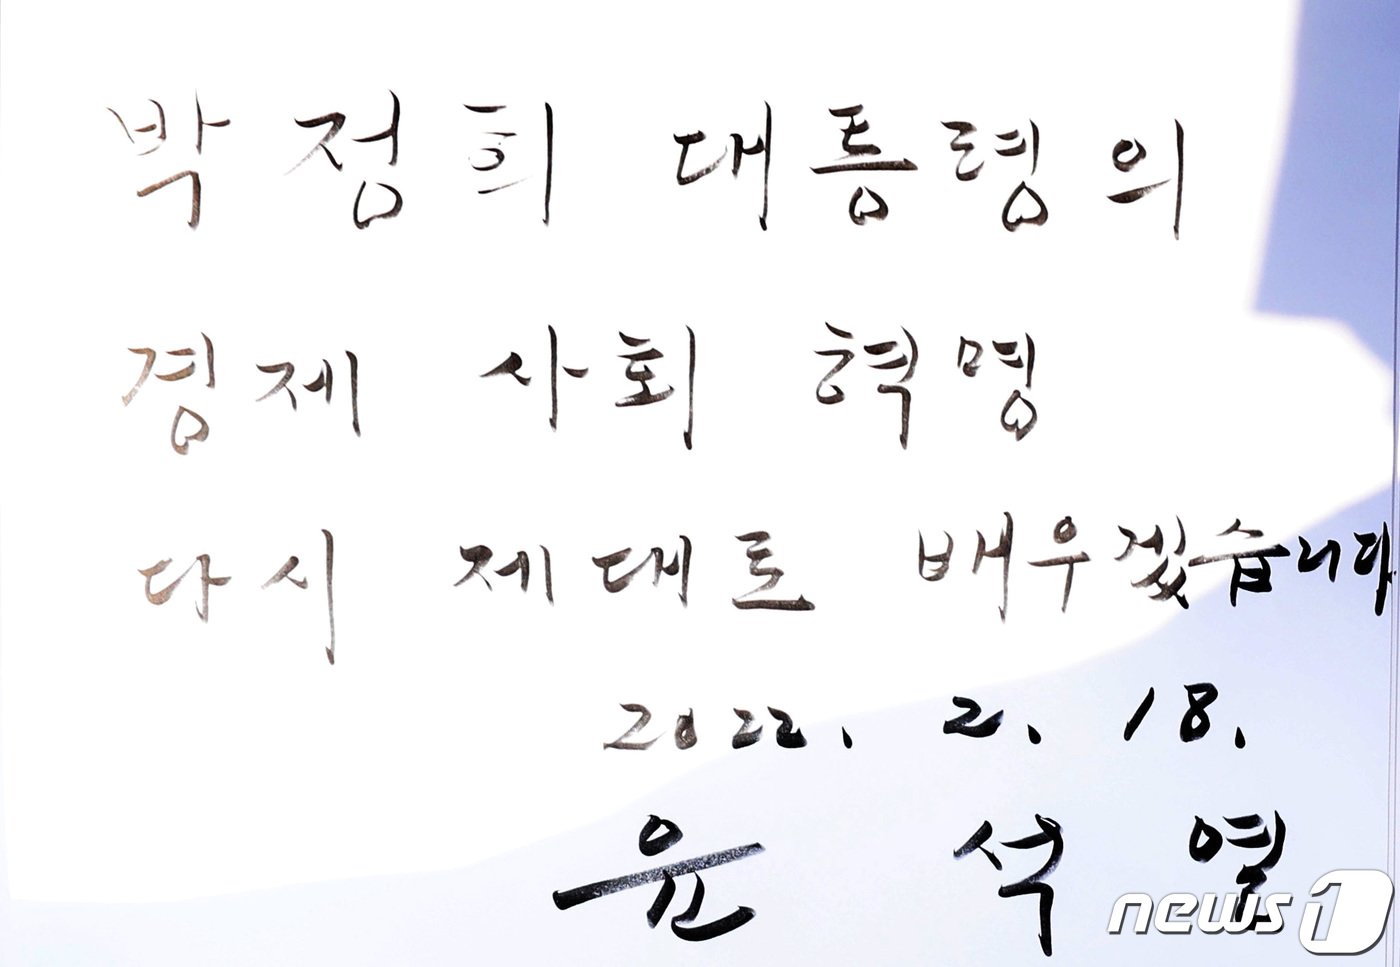 박정희 대통령의
경제 사회 혁명
다시 제대로 배우겠습니다
2022. 2. 18.
윤 석 열
news1